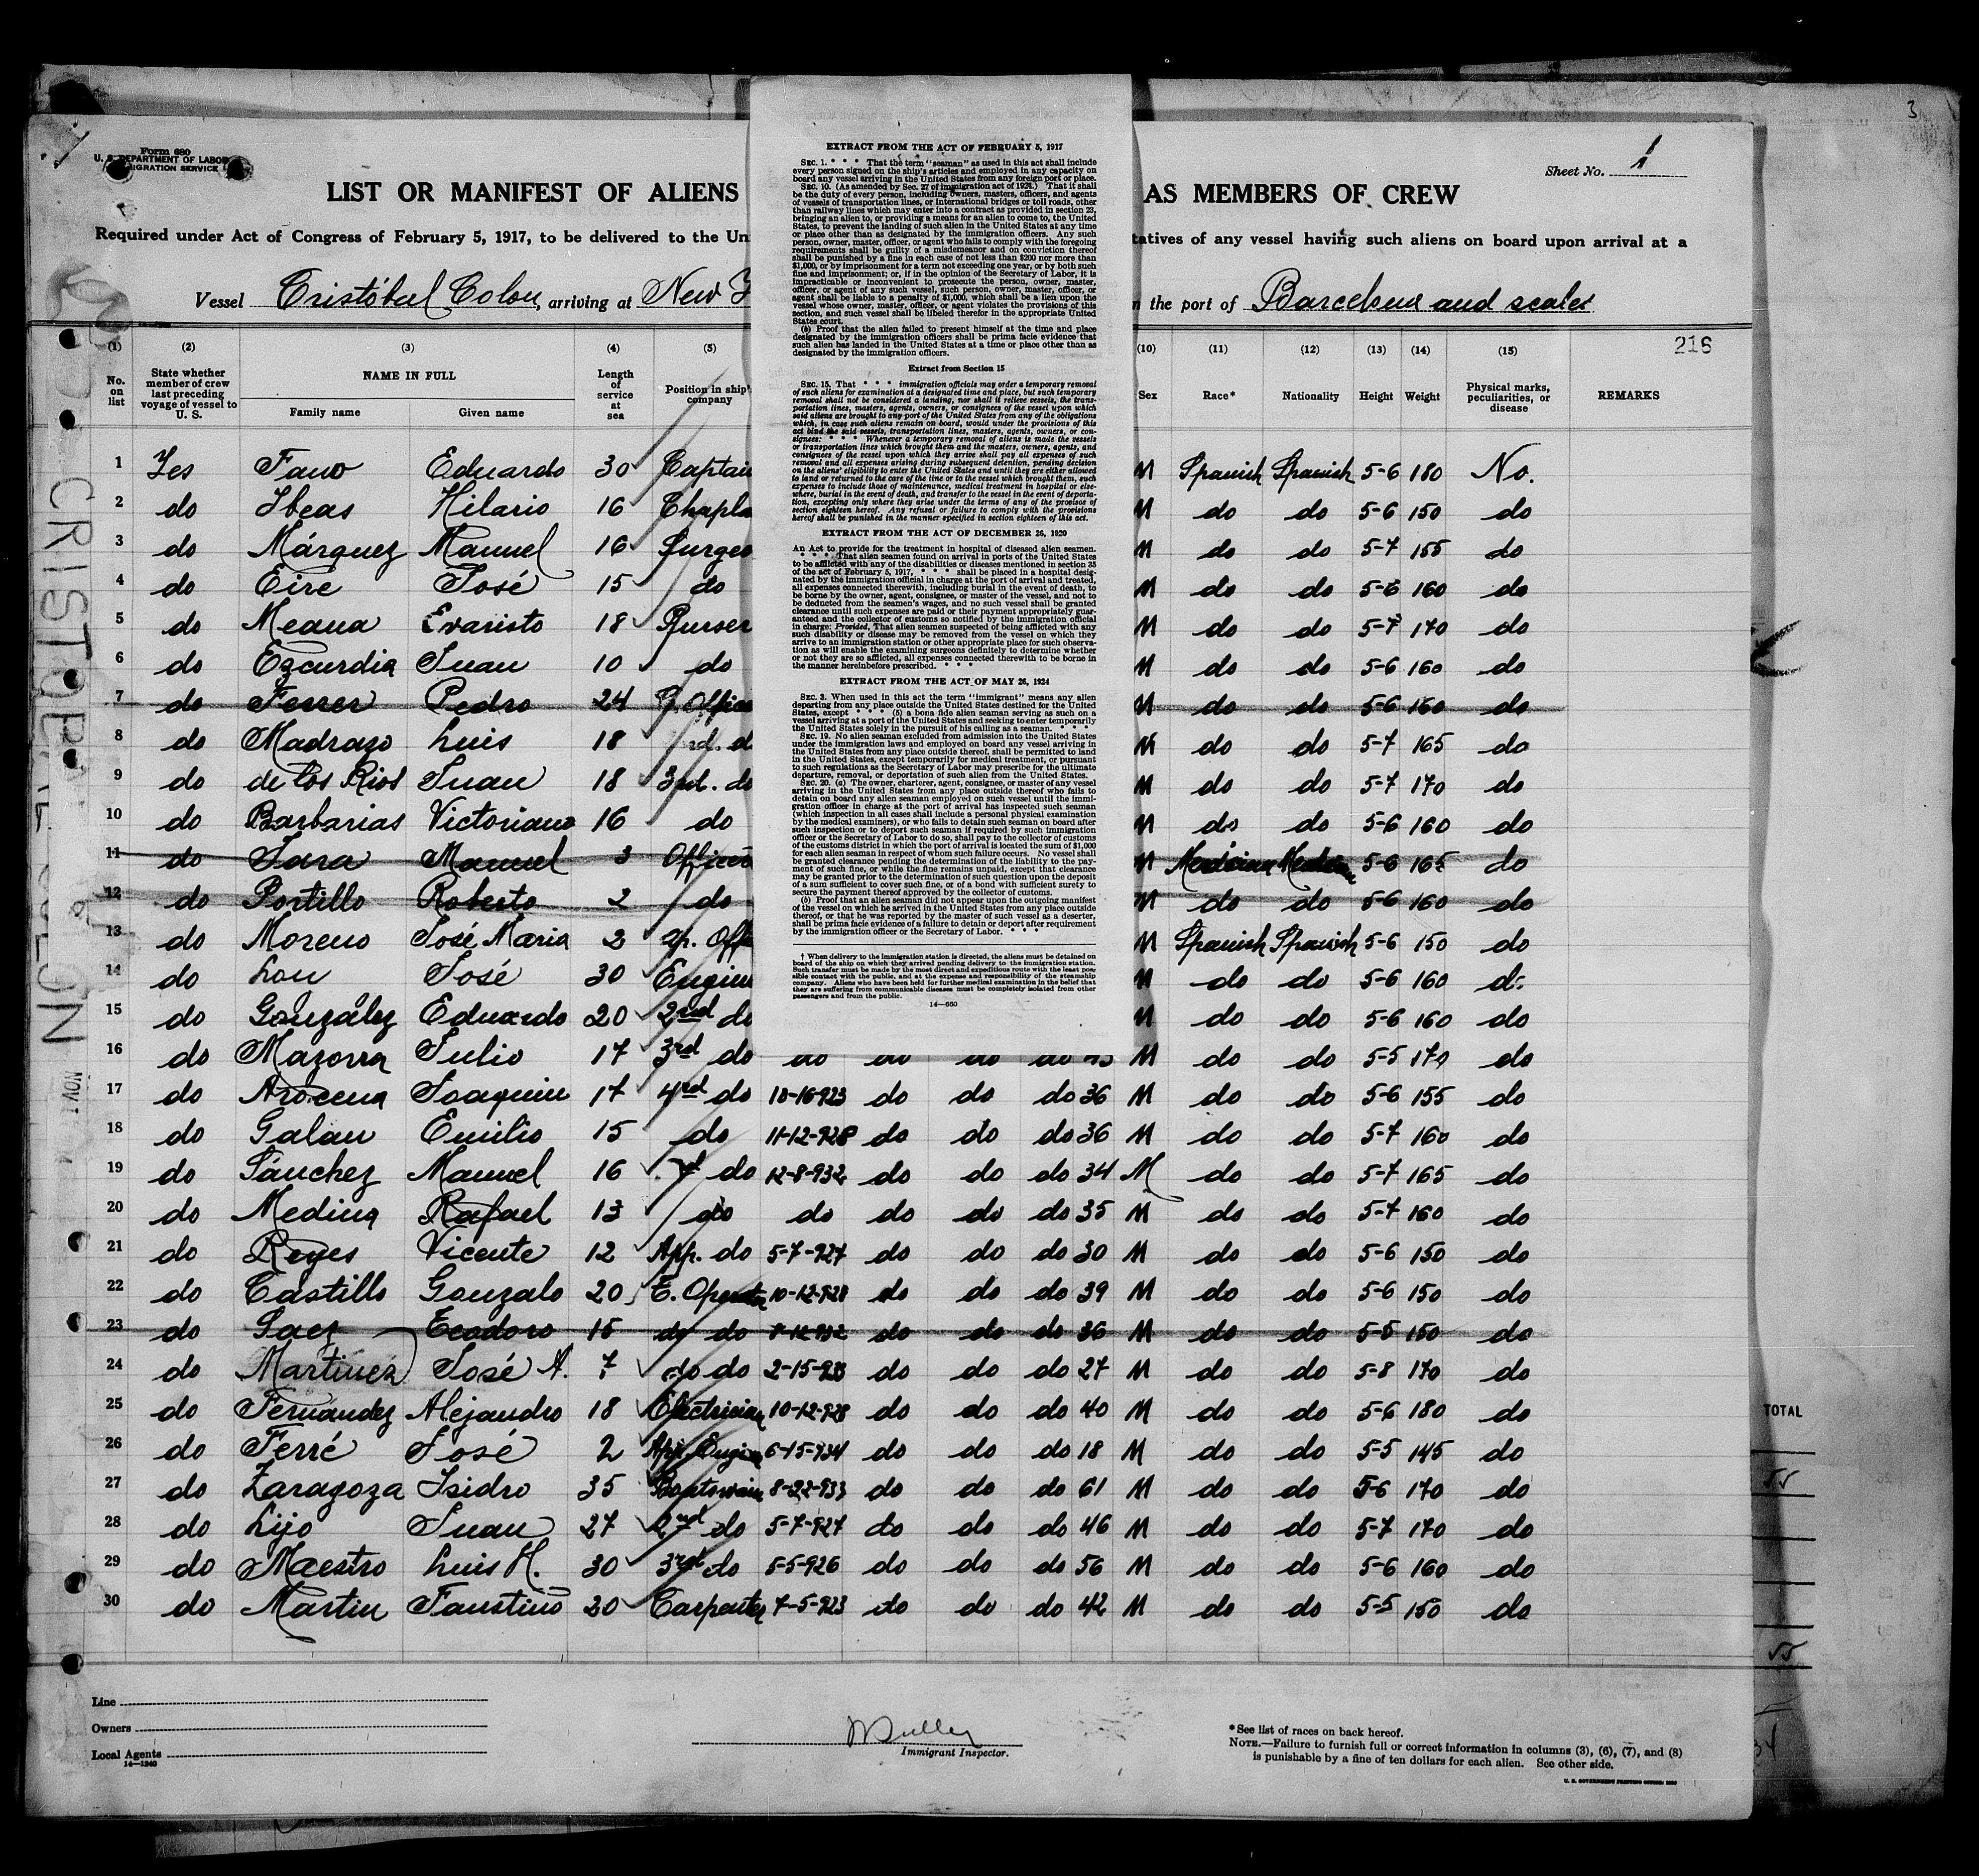 3
Form 680
U. S. DEPARTMENT OF LABOR
IMMIGRATION SERVICE
Sheet No. 1
LIST OR MANIFEST OF ALIENS
AS MEMBERS OF CREW
Required under Act of Congress of February 5, 1917, to be delivered to the Un
tatives of any vessel having such aliens on board upon arrival at a
Vessel Cristóbal Colon, arriving at New Y
the port of Barcelona and scales
216
EXTRACT FROM THE ACT OF FEBRUARY 5, 1917
SEC. 1. * * * That the term "seaman" as used in this act shall include
every person signed on the ship's articles and employed in any capacity on
board any vessel arriving in the United States from any foreign port or place.
SEC. 10. (As amended by Sec. 27 of immigration act of 1924.) That it shall
be the duty of every person, including owners, masters, officers, and agents
of vessels of transportation lines, or international bridges or toll roads, other
than railway lines which may enter into a contract as provided in section 23,
bringing an alien to, or providing a means for an alien to come to, the United
States, to prevent the landing of such alien in the United States at any time
or place other than as designated by the immigration officers. Any such
person, owner, master, officer, or agent who fails to comply with the foregoing
requirements shall be guilty of a misdemeanor and on conviction thereof
shall be punished by a fine in each case of not less than $200 nor more than
$1,000, or by imprisonment for a term not exceeding one year, or by both such
fine and imprisonment; or, if in the opinion of the Secretary of Labor, it is
impracticable or inconvenient to prosecute the person, owner, master,
officer, or agent of any such vessel, such person, owner, master, officer, or
agent shall be liable to a penalty of $1,000, which shall be a lien upon the
vessel whose owner, master, officer, or agent violates the provisions of this
section, and such vessel shall be libeled therefor in the appropriate United
States court.
(b) Proof that the alien failed to present himself at the time and place
designated by the immigration officers shall be prima facie evidence that
such alien has landed in the United States at a time or place other than as
designated by the immigration officers.
Extract from Section 15
SEC. 15. That * * * immigration officials may order a temporary removal
of such aliens for examination at a designated time and place, but such temporary
removal shall not be considered a landing, nor shall it relieve vessels, the trans-
portation lines, masters, agents, owners, or consignees of the vessel upon which
said aliens are brought to any port of the United States from any of the obligations
which, in case such aliens remain on board, would under the provisions of this
act bind the said vessels, transportation lines, masters, agents, owners, or con-
signees: * * * Whenever a temporary removal of aliens is made the vessels
or transportation lines which brought them and the masters, owners, agents, and
consignees of the vessel upon which they arrive shall pay all expenses of such
removal and all expenses arising during subsequent detention, pending decision
on the aliens' eligibility to enter the United States and until they are either allowed
to land or returned to the care of the line or to the vessel which brought them, such
expenses to include those of maintenance, medical treatment in hospital or else-
where, burial in the event of death, and transfer to the vessel in the event of deporta-
tion, excepting only where they arise under the terms of any of the provisos of
section eighteen hereof. Any refusal or failure to comply with the provisions
hereof shall be punished in the manner specified in section eighteen of this act.
EXTRACT FROM THE ACT OF DECEMBER 26, 1920
An Act to provide for the treatment in hospital of diseased alien seamen.
* * * That alien seamen found on arrival in ports of the United States
to be afflicted with any of the disabilities or diseases mentioned in section 35
of the act of February 5, 1917, * * * shall be placed in a hospital desig-
nated by the immigration official in charge at the port of arrival and treated,
all expenses connected therewith, including burial in the event of death, to
be borne by the owner, agent, consignee, or master of the vessel, and not to
be deducted from the seamen's wages, and no such vessel shall be granted
clearance until such expenses are paid or their payment appropriately guar-
anteed and the collector of customs so notified by the immigration official
in charge: Provided, That alien seamen suspected of being afflicted with any
such disability or disease may be removed from the vessel on which they
arrive to an immigration station or other appropriate place for such observa-
tion as will enable the examining surgeons definitely to determine whether
or not they are so afflicted, all expenses connected therewith to be borne in
the manner hereinbefore prescribed. * * *
EXTRACT FROM THE ACT OF MAY 26, 1924
SEC. 3. When used in this act the term "immigrant" means any alien
departing from any place outside the United States destined for the United
States, except * * * (5) a bona fide alien seaman serving as such on a
vessel arriving at a port of the United States and seeking to enter temporarily
the United States solely in the pursuit of his calling as a seaman. * * *
SEC. 19. No alien seaman excluded from admission into the United States
under the immigration laws and employed on board any vessel arriving in
the United States from any place outside thereof, shall be permitted to land
in the United States, except temporarily for medical treatment, or pursuant
to such regulations as the Secretary of Labor may prescribe for the ultimate
departure, removal, or deportation of such alien from the United States.
SEC. 20. (a) The owner, charterer, agent, consignee, or master of any vessel
arriving in the United States from any place outside thereof who fails to
detain on board any alien seaman employed on such vessel until the immi-
gration officer in charge at the port of arrival has inspected such seaman
(which inspection in all cases shall include a personal physical examination
by the medical examiners), or who fails to detain such seaman on board after
such inspection or to deport such seaman if required by such immigration
officer or the Secretary of Labor to do so, shall pay to the collector of customs
of the customs district in which the port of arrival is located the sum of $1,000
for each alien seaman in respect of whom such failure occurs. No vessel shall
be granted clearance pending the determination of the liability to the pay-
ment of such fine, or while the fine remains unpaid, except that clearance
may be granted prior to the determination of such question upon the deposit
of a sum sufficient to cover such fine, or of a bond with sufficient surety to
secure the payment thereof approved by the collector of customs.
(b) Proof that an alien seaman did not appear upon the outgoing manifest
of the vessel on which he arrived in the United States from any place outside
thereof, or that he was reported by the master of such vessel as a deserter,
shall be prima facie evidence of a failure to detain or deport after requirement
by the immigration officer or the Secretary of Labor. * * *
† When delivery to the immigration station is directed, the aliens must be detained on
board of the ship on which they arrived pending delivery to the immigration station.
Such transfer must be made by the most direct and expeditious route with the least pos-
sible contact with the public, and at the expense and responsibility of the steamship
company. Aliens who have been held for further medical examination in the belief that
they are suffering from communicable diseases must be completely isolated from other
passengers and from the public.
14—660
(1) (2) (3) (4) (5) (10) (11) (12) (13) (14) (15)
No. on list
State whether member of crew last preceding voyage of vessel to U. S.
NAME IN FULL
Family name Given name
Length of service at sea
Position in ship's company
Sex Race* Nationality Height Weight
Physical marks, peculiarities, or disease
REMARKS
1 Yes Fano Eduardo 30 Captain M Spanish Spanish 5-6 180 No.
2 do Ibeas Hilario 16 Chapla M do do 5-6 150 do
3 do Márquez Manuel 16 Surgeo M do do 5-7 155 do
4 do Eire José 15 do M do do 5-6 160 do
5 do Meana Evaristo 18 Purser M do do 5-7 170 do
6 do Ezcurdia Juan 10 do M do do 5-6 160 do
7 do Ferrer Pedro 24 Office M do do 5-6 160 do
8 do Madrazo Luis 18 do M do do 5-7 165 do
9 do de los Rios Juan 18 3rd. do M do do 5-7 170 do
10 do Barbarias Victoriano 16 do M do do 5-6 160 do
11 do Jara Manuel 3 Officer M Mexican Mexican 5-6 165 do
12 do Portillo Roberto 2 do M do do 5-6 160 do
13 do Moreno José Maria 2 Ap. Offi M Spanish Spanish 5-6 150 do
14 do Lou José 30 Engine M do do 5-6 160 do
15 do González Eduardo 20 2nd do M do do 5-6 160 do
16 do Mazorra Julio 17 3rd do M do do 5-5 170 do
17 do Arocena Joaquin 17 4rd do 10-16-923 do do do 36 M do do 5-6 155 do
18 do Galan Emilio 15 do 11-12-928 do do do 36 M do do 5-7 160 do
19 do Sánchez Manuel 16 do 12-8-932 do do do 34 M do do 5-7 165 do
20 do Medina Rafael 13 do do do do do 35 M do do 5-7 160 do
21 do Reyes Vicente 12 App. do 5-7-927 do do do 30 M do do 5-6 150 do
22 do Castillo Gonzalo 20 E. Operator 10-12-928 do do do 39 M do do 5-6 150 do
23 do Saez Teodoro 15 do do do do do 36 M do do 5-5 150 do
24 do Martinez José A. 7 do do 2-15-933 do do do 27 M do do 5-8 170 do
25 do Fernandez Alejandro 18 Electrician 10-12-928 do do do 40 M do do 5-6 180 do
26 do Ferré José 2 App. Engin 6-15-934 do do do 18 M do do 5-5 145 do
27 do Zaragoza Isidro 35 Boatswain 8-22-933 do do do 61 M do do 5-6 170 do
28 do Lijo Juan 27 2nd do 5-7-927 do do do 46 M do do 5-7 170 do
29 do Maestro Luis M. 30 3rd do 5-5-926 do do do 56 M do do 5-6 160 do
30 do Martin Faustino 20 Carpenter 7-5-923 do do do 42 M do do 5-5 150 do
TOTAL
55
55
Line
Owners
Local Agents
14—1240
Immigrant Inspector.
*See list of races on back hereof.
NOTE.—Failure to furnish full or correct information in columns (3), (6), (7), and (8)
is punishable by a fine of ten dollars for each alien. See other side.